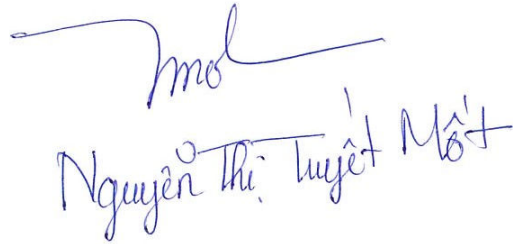 Nguyễn Thị Tuyết Mốt